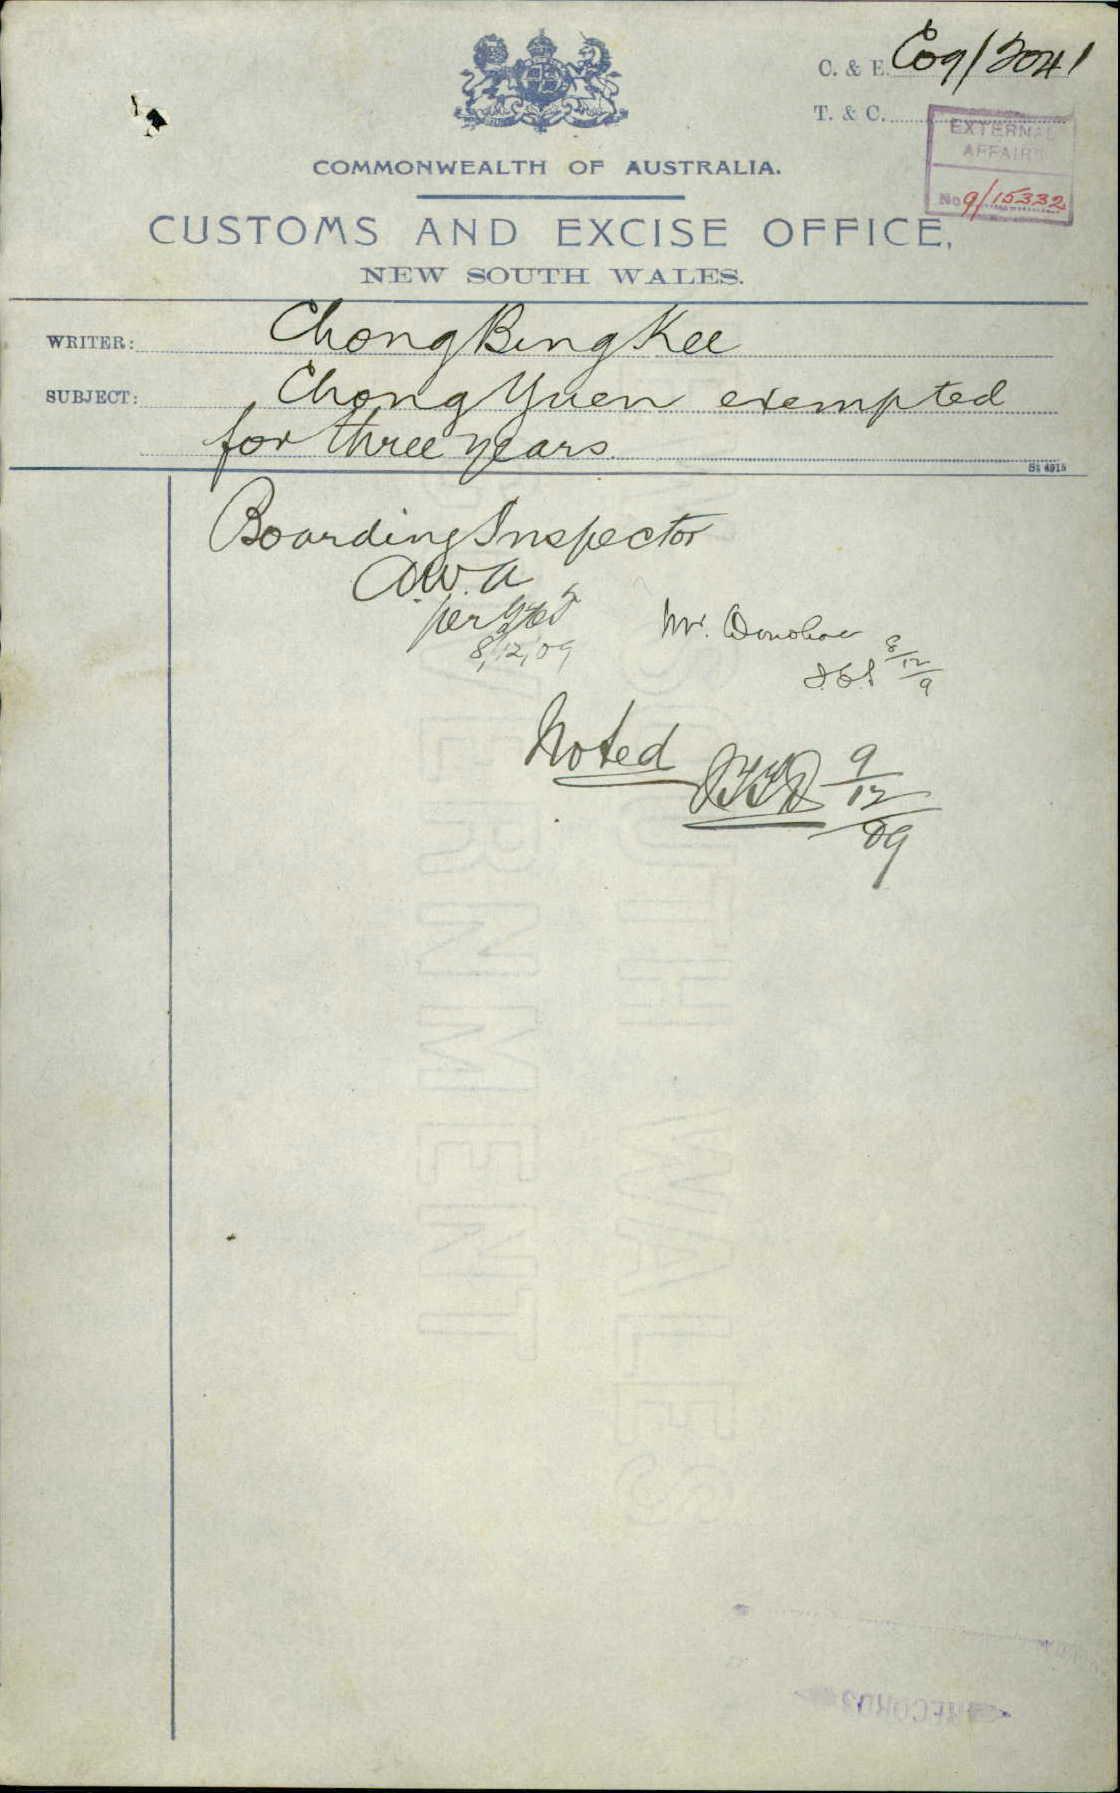 C. & E. C09/2041
T. & C.
EXTERNAL
AFFAIRS
No 9/15332
COMMONWEALTH OF AUSTRALIA.
CUSTOMS AND EXCISE OFFICE,
NEW SOUTH WALES.
WRITER: Chong Bing Kee
SUBJECT: Chong Yuen exempted
for three years.
St 4915
Boarding Inspector
A.W. A
per
8,12,09
Mr. Donohoe
8/12/9
Noted
9/12/09
NEW SOUTH WALES
GOVERNMENT
RECORDS